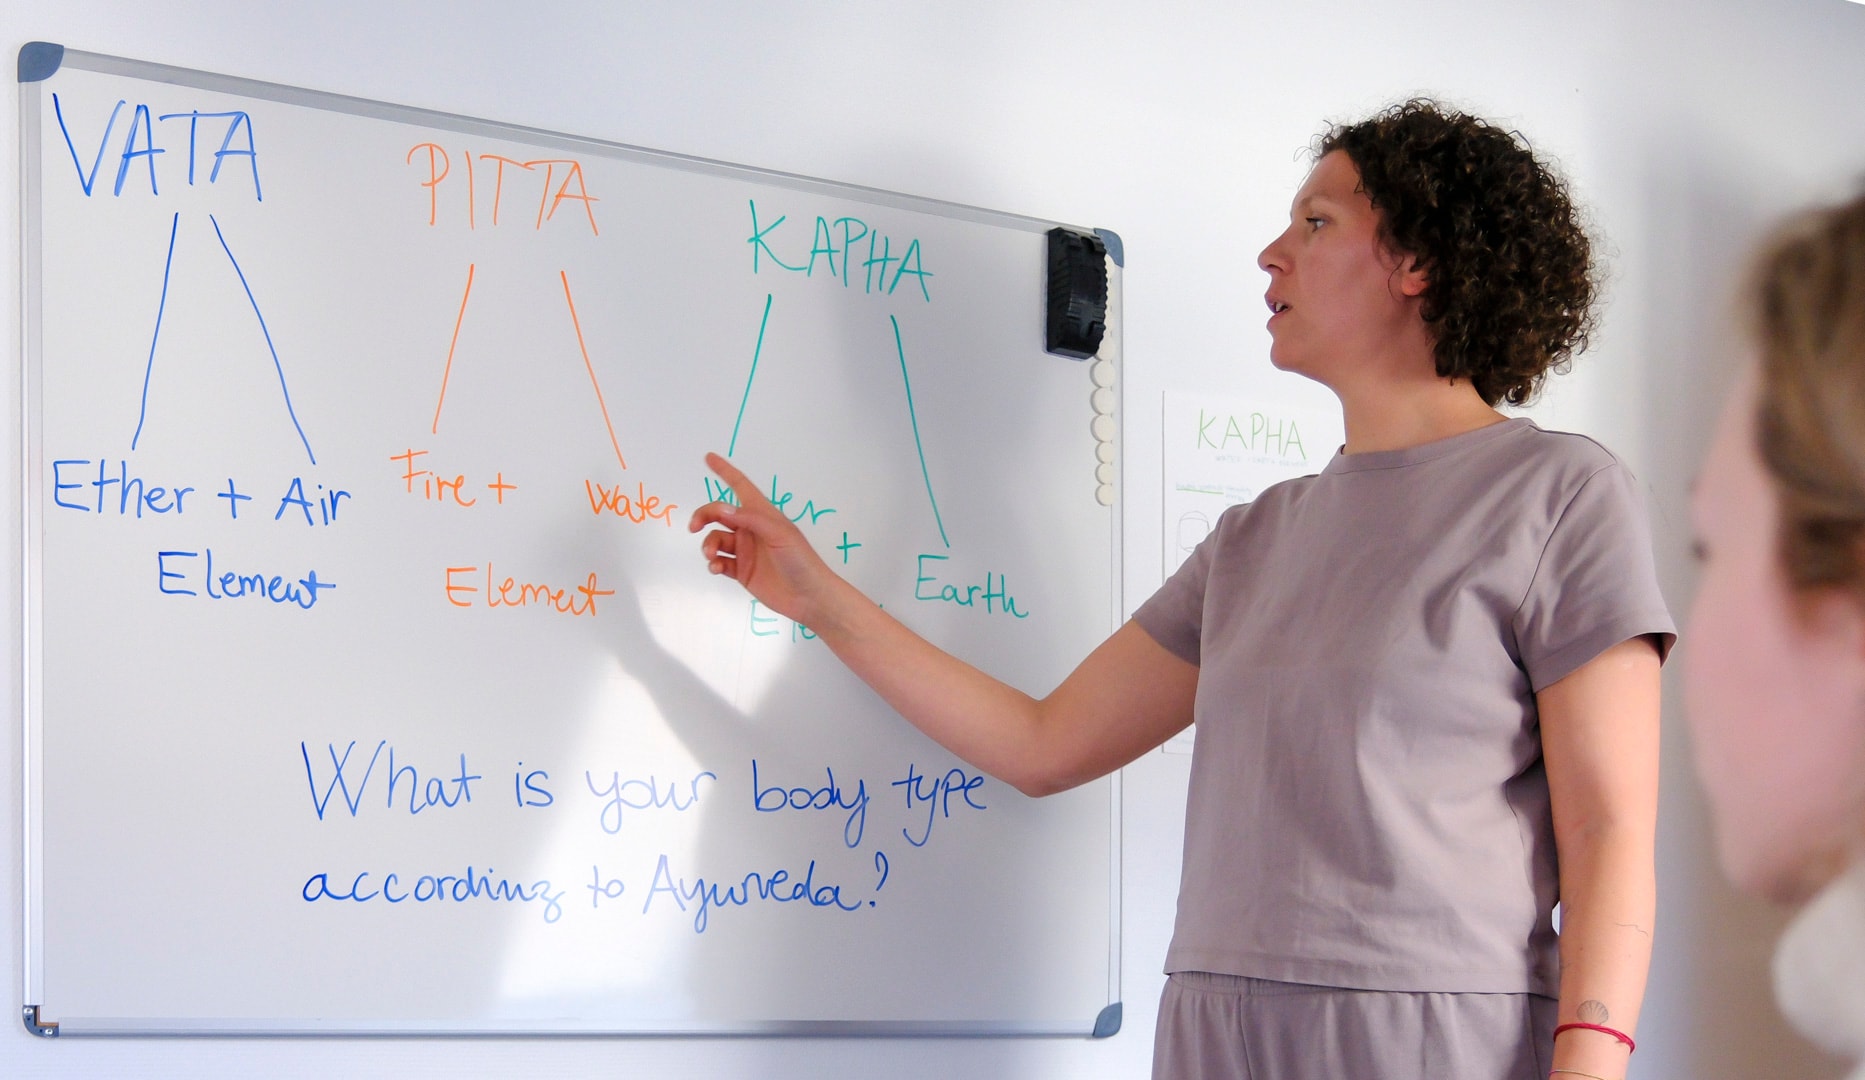 VATA
PITTA
KAPHA
Ether + Air
Element
Fire + Water
Element
Water + Earth
What is your body type
according to Ayurveda?
KAPHA